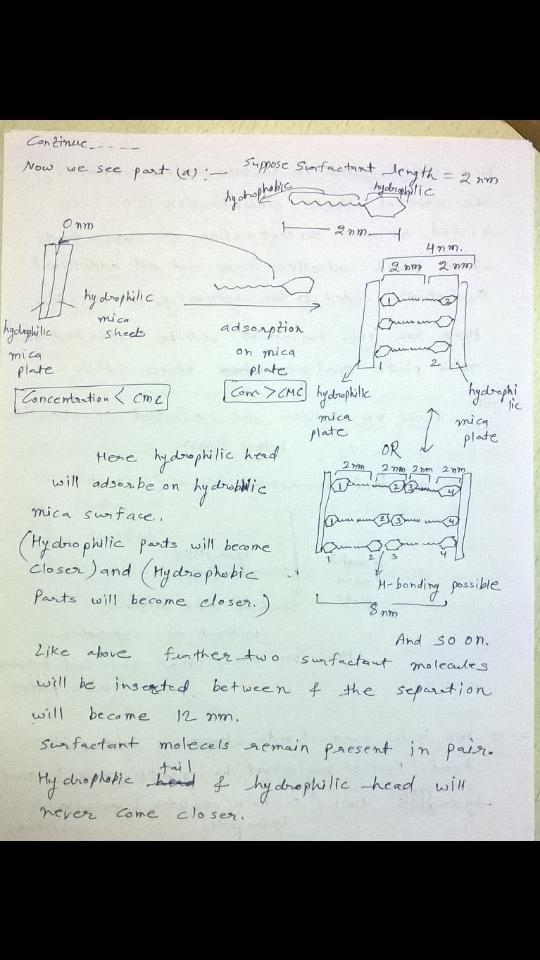 Continue.....
Now we see part (a) :- Suppose Surfactant length = 2 nm
hydrophobic hydrophilic
2 nm
0 nm
4 nm.
2 nm 2 nm
hydrophilic
mica
sheets
hydrophilic
mica
plate
adsorption
on mica
plate
1 2
1 2
Concentration < CMC
Conc > CMC
hydrophilic
mica
plate
hydrophi
lic
mica
plate
OR
2 nm 2 nm 2 nm 2 nm
1 2 3 4
1 2 3 4
1 2 3 4
H-bonding possible
8 nm
Here hydrophilic head
will adsorbe on hydrophilic
mica surface.
(Hydrophilic parts will become
closer) and (Hydrophobic
Parts will become closer.)
And so on.
Like above further two surfactant molecules
will be inserted between & the separation
will become 12 nm.
Surfactant molecels remain present in pair.
Hydrophobic head tail & hydrophilic head will
never come closer.